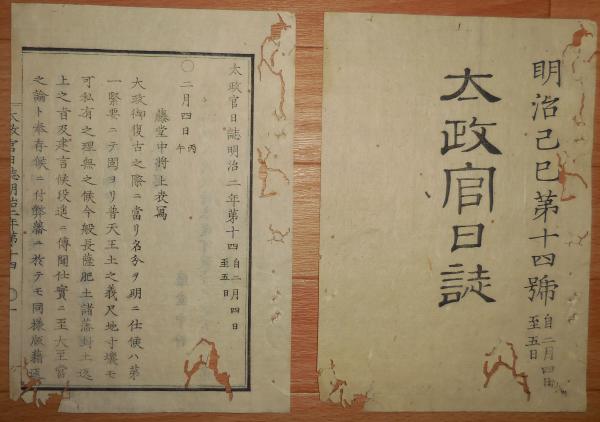 明治己巳第十四號 自二月四日 至五日
太政官日誌
太政官日誌明治二年第十四 自二月四日 至五日
〇二月四日 丙午
藤堂中将上表寫
大政御復古之際ニ當リ名分ヲ明ニ仕候ハ第
一緊要ニテ固ヨリ普天王土之義尺地寸壤モ
可私有之理無之候今般長薩肥土諸藩封土返
上之旨及建言候段逓ニ傳聞仕實ニ至大至當
之論ト奉存候ニ付弊藩ニ於テモ同様版籍返
太政官日誌明治二年第十四 〇一